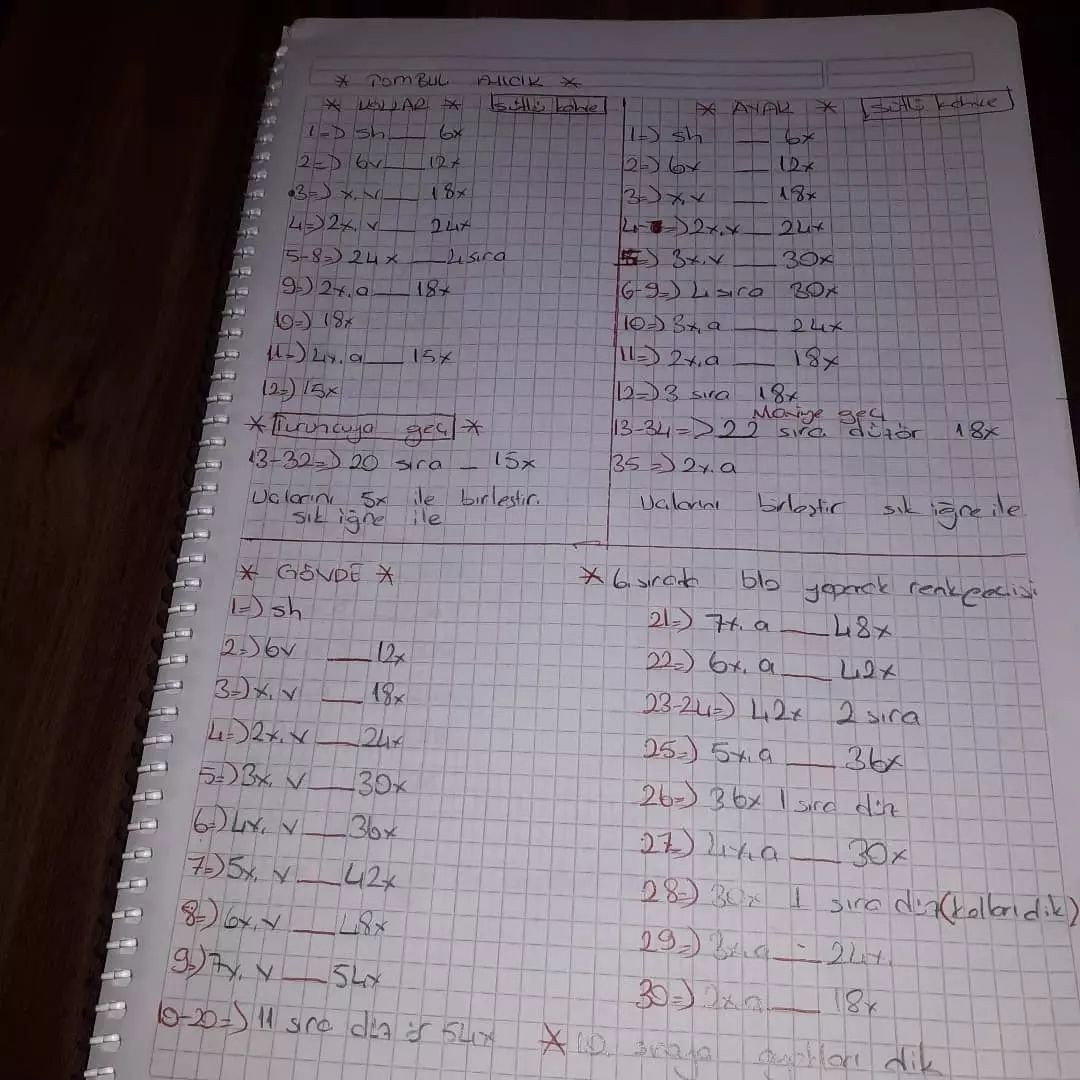 * TOMBUL AYICIK *
* KOLLAR * Sütlü kahve
1=) sh __ 6x
2=) 6v __ 12x
3=) x.v __ 18x
4=) 2x.v __ 24x
5-8=) 24x __ 4 sıra
9=) 2x.a __ 18x
10=) 18x
11=) 4x.a __ 15x
12=) 15x
* Turuncuya geç *
13-32=) 20 sıra _ 15x
Uclarını 5x ile birleştir.
sık iğne ile
* AYAK * Sütlü kahve
1=) sh __ 6x
2=) 6v __ 12x
3=) x.v __ 18x
4=) 2x.v __ 24x
5=) 3x.v __ 30x
6-9=) 4 sıra 30x
10=) 3x.a __ 24x
11=) 2x.a __ 18x
12=) 3 sıra 18x
Maviye geç
13-34=) 22 sıra düz ör 18x
35=) 2x.a
Uclarını birleştir sık iğne ile
* GÖVDE *
1=) sh
2=) 6v __ 12x
3=) x.v __ 18x
4=) 2x.v __ 24x
5=) 3x.v __ 30x
6=) 4x.v __ 36x
7=) 5x.v __ 42x
8=) 6x.v __ 48x
9=) 7x.v __ 54x
10-20=) 11 sıra düz ör 54x
* 6. sırada blo yaparak
21=) 7x.a __ 48x
22=) 6x.a __ 42x
23-24=) 42x 2 sıra
25=) 5x.a __ 36x
26=) 36x 1 sıra düz
27=) 4x.a __ 30x
28=) 30x 1 sıra düz (kolları dik)
29=) 3x.a __ 24x
30=) 2x.a __ 18x
* 10. sıraya ayakları dik